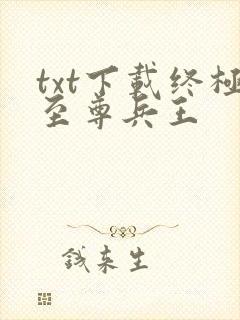 txt下载终极
至尊兵王
钱来生